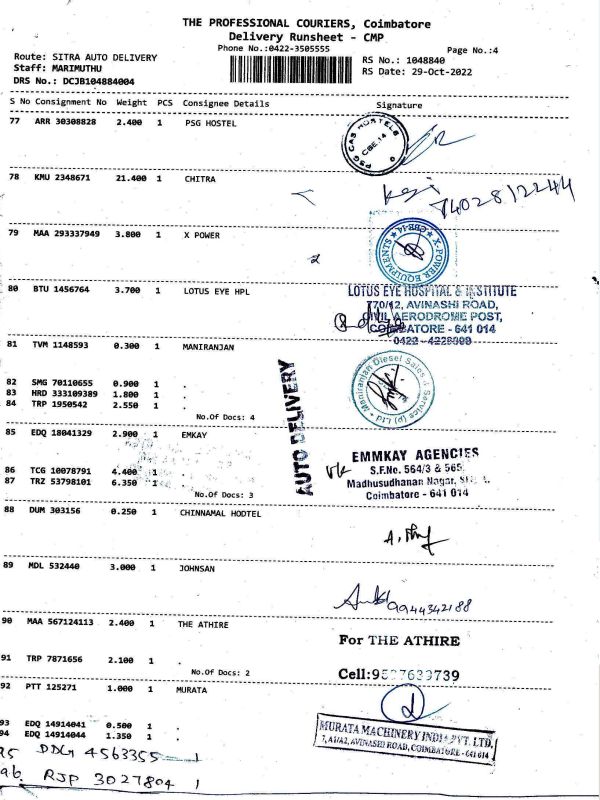 THE PROFESSIONAL COURIERS, Coimbatore
Delivery Runsheet - CMP
Phone No.:0422-3505555
Page No.:4
Route: SITRA AUTO DELIVERY
RS No.: 1048840
Staff: MARIMUTHU
RS Date: 29-Oct-2022
DRS No.: DCJB104884004
S No Consignment No Weight PCS Consignee Details Signature
77 ARR 30308828 2.400 1 PSG HOSTEL
PSG CAS HOSTELS
CBE.14
78 KMU 2348671 21.400 1 CHITRA
7402812244
79 MAA 293337949 3.800 1 X POWER
X-POWER EQUIPMENTS
CBE-14
80 BTU 1456764 3.700 1 LOTUS EYE HPL
LOTUS EYE HOSPITAL & INSTITUTE
770/12, AVINASHI ROAD,
CIVIL AERODROME POST,
COIMBATORE - 641 014
0422 - 4229999
81 TVM 1148593 0.300 1 MANIRANJAN
Maniranjan Diesel Sales & Service (p) Ltd
82 SMG 70110655 0.900 1 .
83 HRD 333109389 1.800 1 .
84 TRP 1950542 2.550 1 .
No.Of Docs: 4
AUTO DELIVERY
85 EDQ 18041329 2.900 1 EMKAY
EMMKAY AGENCIES
S.F.No. 564/3 & 565
Madhusudhanan Nagar,
Coimbatore - 641 014
86 TCG 10078791 4.400 1 .
87 TRZ 53798101 6.350 1 .
No.Of Docs: 3
88 DUM 303156 0.250 1 CHINNAMAL HODTEL
89 MDL 532440 3.000 1 JOHNSAN
9944342188
90 MAA 567124113 2.400 1 THE ATHIRE
For THE ATHIRE
91 TRP 7871656 2.100 1 .
No.Of Docs: 2
Cell:9597639739
92 PTT 125271 1.000 1 MURATA
MURATA MACHINERY INDIA PVT. LTD.
7, A1/A2, AVINASHI ROAD, COIMBATORE - 641 014
93 EDQ 14914041 0.500 1 .
94 EDQ 14914044 1.350 1 .
95 DDG 4563355 1
96 RJP 3027804 1